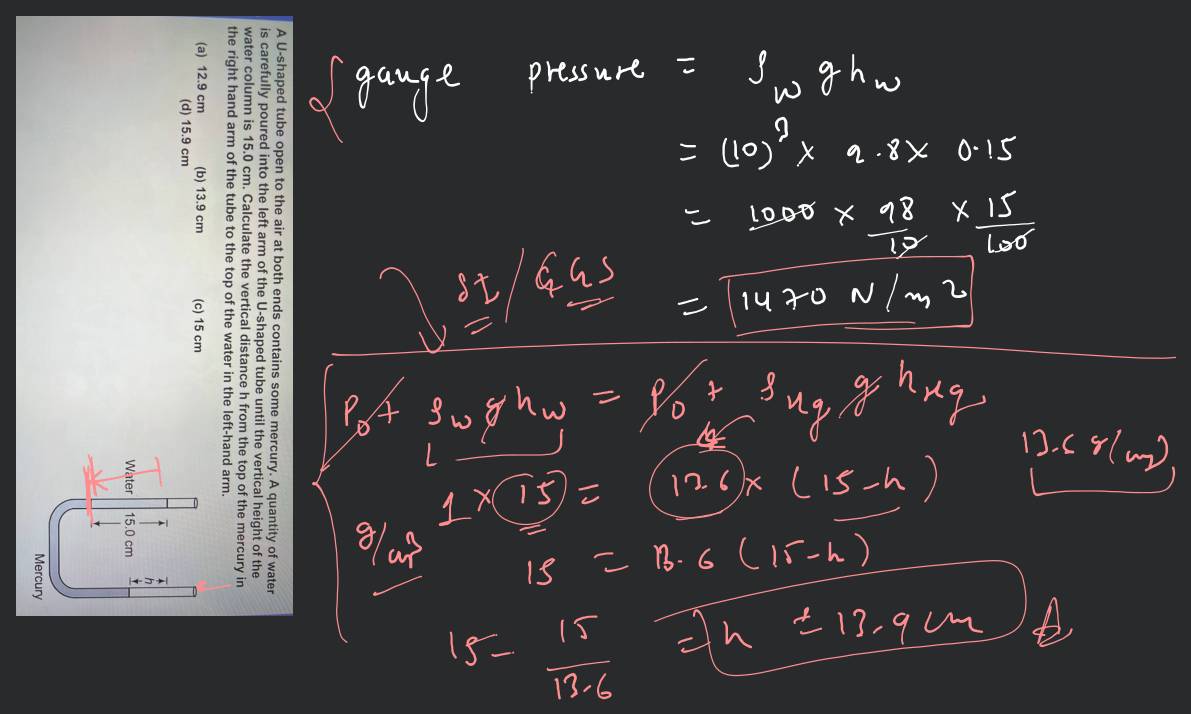 A U-shaped tube open to the air at both ends contains some mercury. A quantity of water
is carefully poured into the left arm of the U-shaped tube until the vertical height of the
water column is 15.0 cm. Calculate the vertical distance h from the top of the mercury in
the right hand arm of the tube to the top of the water in the left-hand arm.
(a) 12.9 cm (b) 13.9 cm (c) 15 cm
(d) 15.9 cm
Water
15.0 cm
h
Mercury
gauge pressure = ρw g hw
= (10)³ × 9.8 × 0.15
= 1000 × 98/10 × 15/100
= 1470 N/m2
SI / CGS
P0 + ρw g hw = P0 + ρHg g hHg
1 × 15 = 13.6 × (15-h)
g/cm3
13.6 g/cm3
15 = 13.6 (15-h)
15 - 15/13.6 = h = 13.9 cm